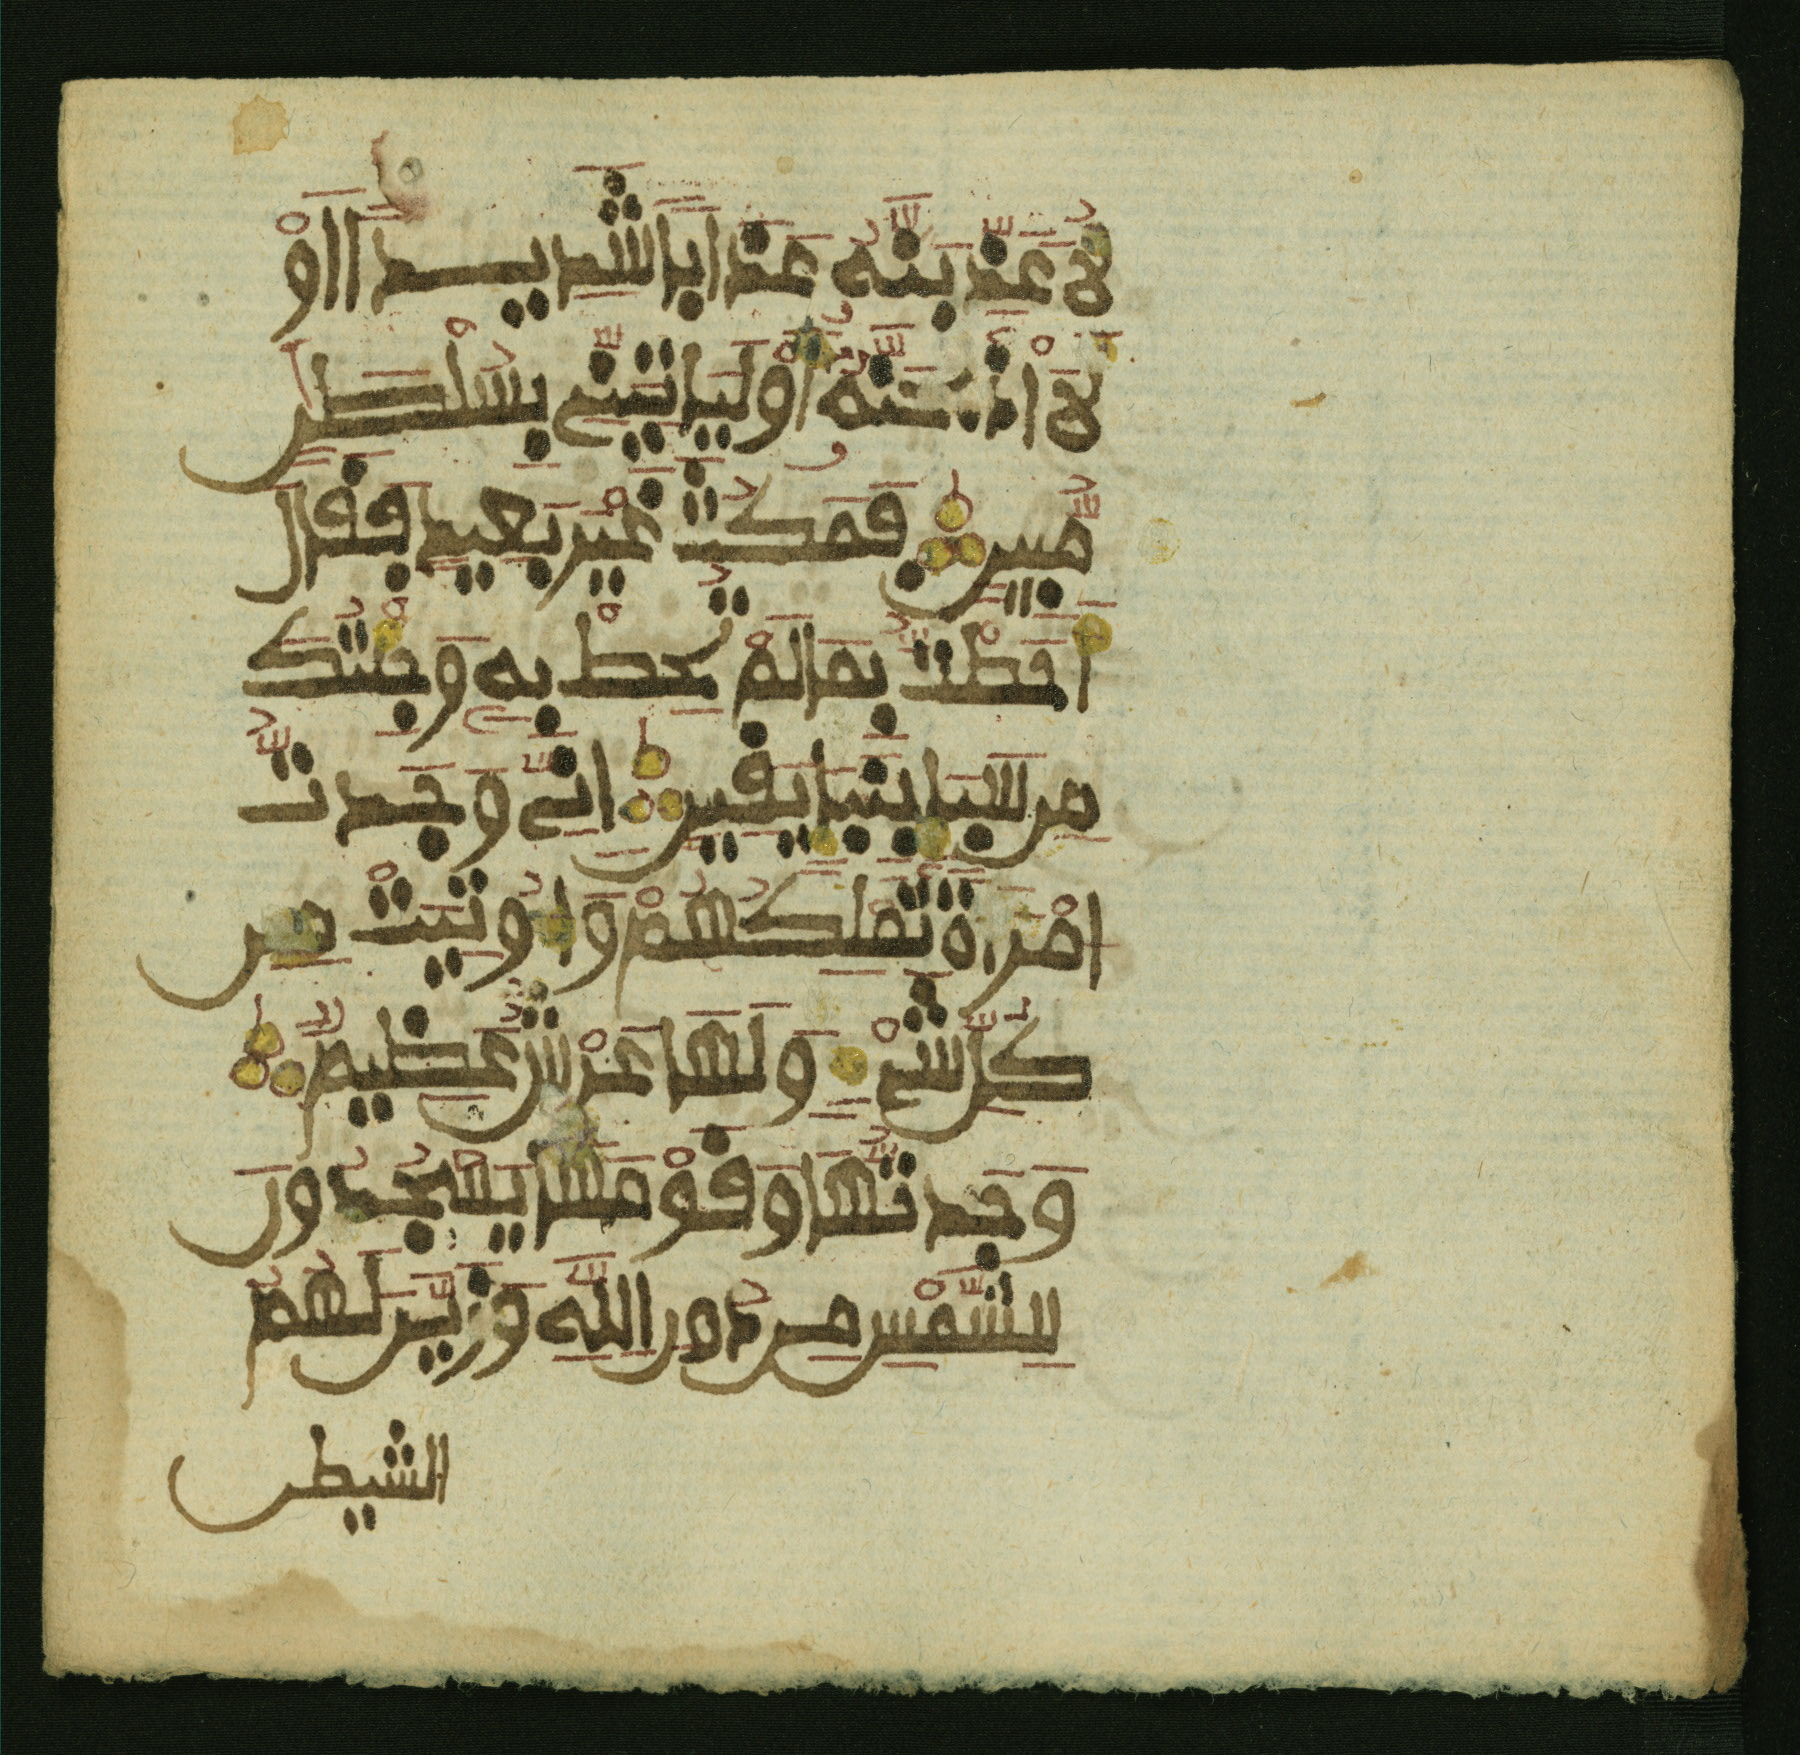 لا عذبنه عذابا شديدا او
لا اذبحنه او لياتيني بسلطن
مبين فمكث غير بعيد فقال
احطت بما لم تحط به وجئتك
من سبا بنبا يقين اني وجدت
امراة تملكهم واوتيت من
كل شيء ولها عرش عظيم
وجدتها وقومها يسجدون
للشمس من دون الله وزين لهم
الشيطن